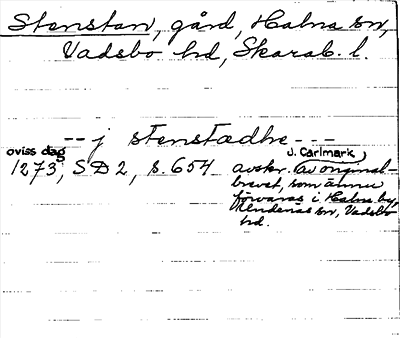 Stenstan, gård, Halna sn,
Vadsbo hd, Skarab. l.
-- j stenstadhe ---
oviss dag
1273, SD 2, s. 654
J. Carlmark
avskr. av original-
brevet, som ännu
förvaras i Halna by,
Undenäs sn, Vadsbo
hd.